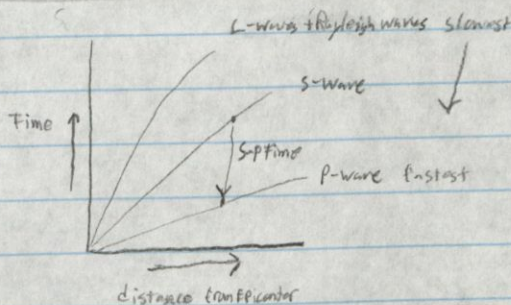 L-waves + Rayleigh waves slowest
S-wave
Time
S-P time
P-wave fastest
distance from Epicenter